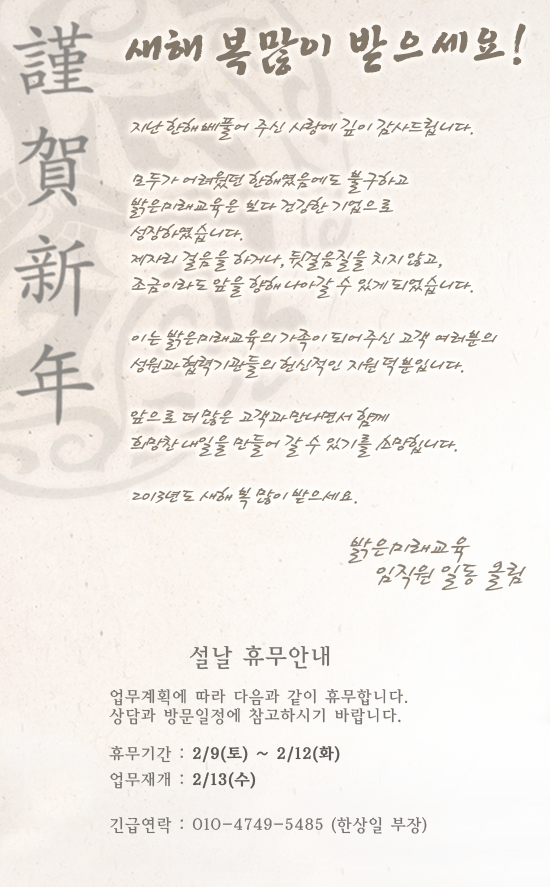 謹賀新年
새해 복 많이 받으세요!
지난 한해 베풀어 주신 사랑에 깊이 감사드립니다.
모두가 어려웠던 한해였음에도 불구하고
밝은미래교육은 보다 건강한 기업으로
성장하였습니다.
제자리 걸음을 하거나, 뒷걸음질을 치지 않고,
조금이라도 앞을 향해 나아갈 수 있게 되었습니다.
이는 밝은미래교육의 가족이 되어주신 고객 여러분의
성원과 협력기관들의 헌신적인 지원 덕분입니다.
앞으로 더 많은 고객과 만나면서 함께
희망찬 내일을 만들어 갈 수 있기를 소망합니다.
2013년도 새해 복 많이 받으세요.
밝은미래교육
임직원 일동 올림
설날 휴무안내
업무계획에 따라 다음과 같이 휴무합니다.
상담과 방문일정에 참고하시기 바랍니다.
휴무기간 : 2/9(토) ~ 2/12(화)
업무재개 : 2/13(수)
긴급연락 : 010-4749-5485 (한상일 부장)